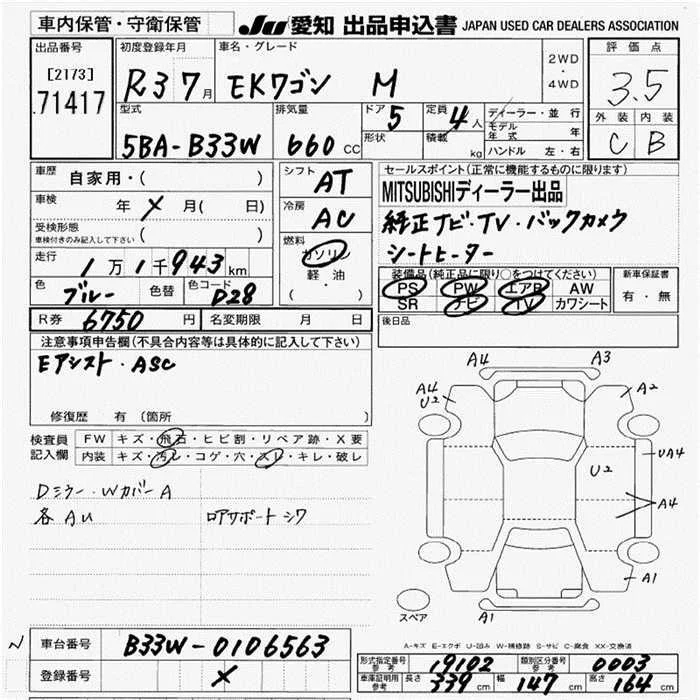 車内保管・守衛保管 JU 愛知 出品申込書 JAPAN USED CAR DEALERS ASSOCIATION
出品番号 [2173] 71417
初度登録年月 R3 7月
車名・グレード EKワゴン M
2WD・4WD
評価点 3.5
外装 C 内装 B
型式 5BA-B33W
排気量 660 CC
ドア 5 形状
定員 4人 積載 kg
ディーラー・並行
モデル年式 年
ハンドル 左・右
車歴 自家用・( )
車検 年 X 月( 日)
受検形態 車検付きのみ記入して下さい ( )
走行 1万1千943km
色 ブルー 色替 色コード D28
シフト AT
冷房 AC
燃料 ガソリン 軽油 ( ・ )
セールスポイント(正常に機能するものに限ります)
MITSUBISHIディーラー出品
純正ナビ・TV・バックカメラ
シートヒーター
装備品(純正品に限り○をつけてください)
PS PW エアB AW
SR ナビ TV カワシート
新車保証書 有・無
後日品
R券 6750円 名変期限 月 日
注意事項申告欄(不具合内容等は具体的に記入して下さい)
Eアシスト・ASC
修復歴 有 (箇所
検査員記入欄
FW キズ・飛石・ヒビ割・リペア跡・X要
内装 キズ・汚レ・コゲ・穴・スレ・キレ・破レ
Dミラー・WカバーA
各AU ロアサポートシワ
A4 A3
A4 U2 A2
U2 UA4
A4
A1
スペア A1
A-キズ E-エクボ U-凹み W-補修跡 S-サビ C-腐食 XX-交換済
車台番号 B33W-0106563
登録番号 X
形式指定番号 参考 19102 類別区分番号 参考 0003
車庫証明用 参考 長さ 339cm 幅 147cm 高さ 164cm